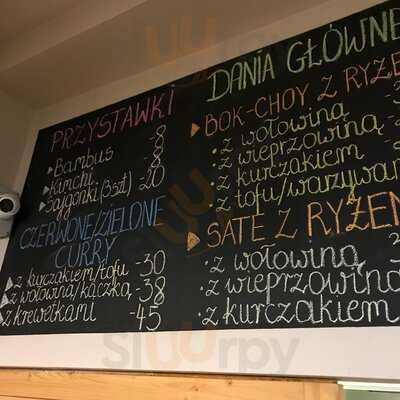 PRZYSTAWKI
Bambus - 8
Kimchi - 8
Sajgonki (3szt) - 20
CZERWONE/ZIELONE
CURRY
z kurczakiem/tofu - 30
z wołowiną/kaczką - 38
z krewetkami - 45
DANIA GŁÓWNE
BOK-CHOY Z RYŻE
• z wołowiną
• z wieprzowiną
• z kurczakiem
• z tofu/warzywa
SATE Z RYŻEM
• z wołowiną
• z wieprzowiną
• z kurczakiem
sluurpy